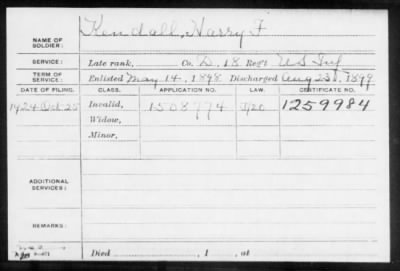 NAME OF SOLDIER: Kendall, Harry F
SERVICE: Late rank, Co. D. 18 Reg't U S Inf
TERM OF SERVICE: Enlisted May 14, 1898 Discharged Aug 23, 1899
DATE OF FILING. CLASS. APPLICATION NO. LAW. CERTIFICATE NO.
1924 Oct 25 Invalid, 1508774 1259984
Widow,
Minor,
ADDITIONAL SERVICES:
REMARKS:
Died , 1 , at